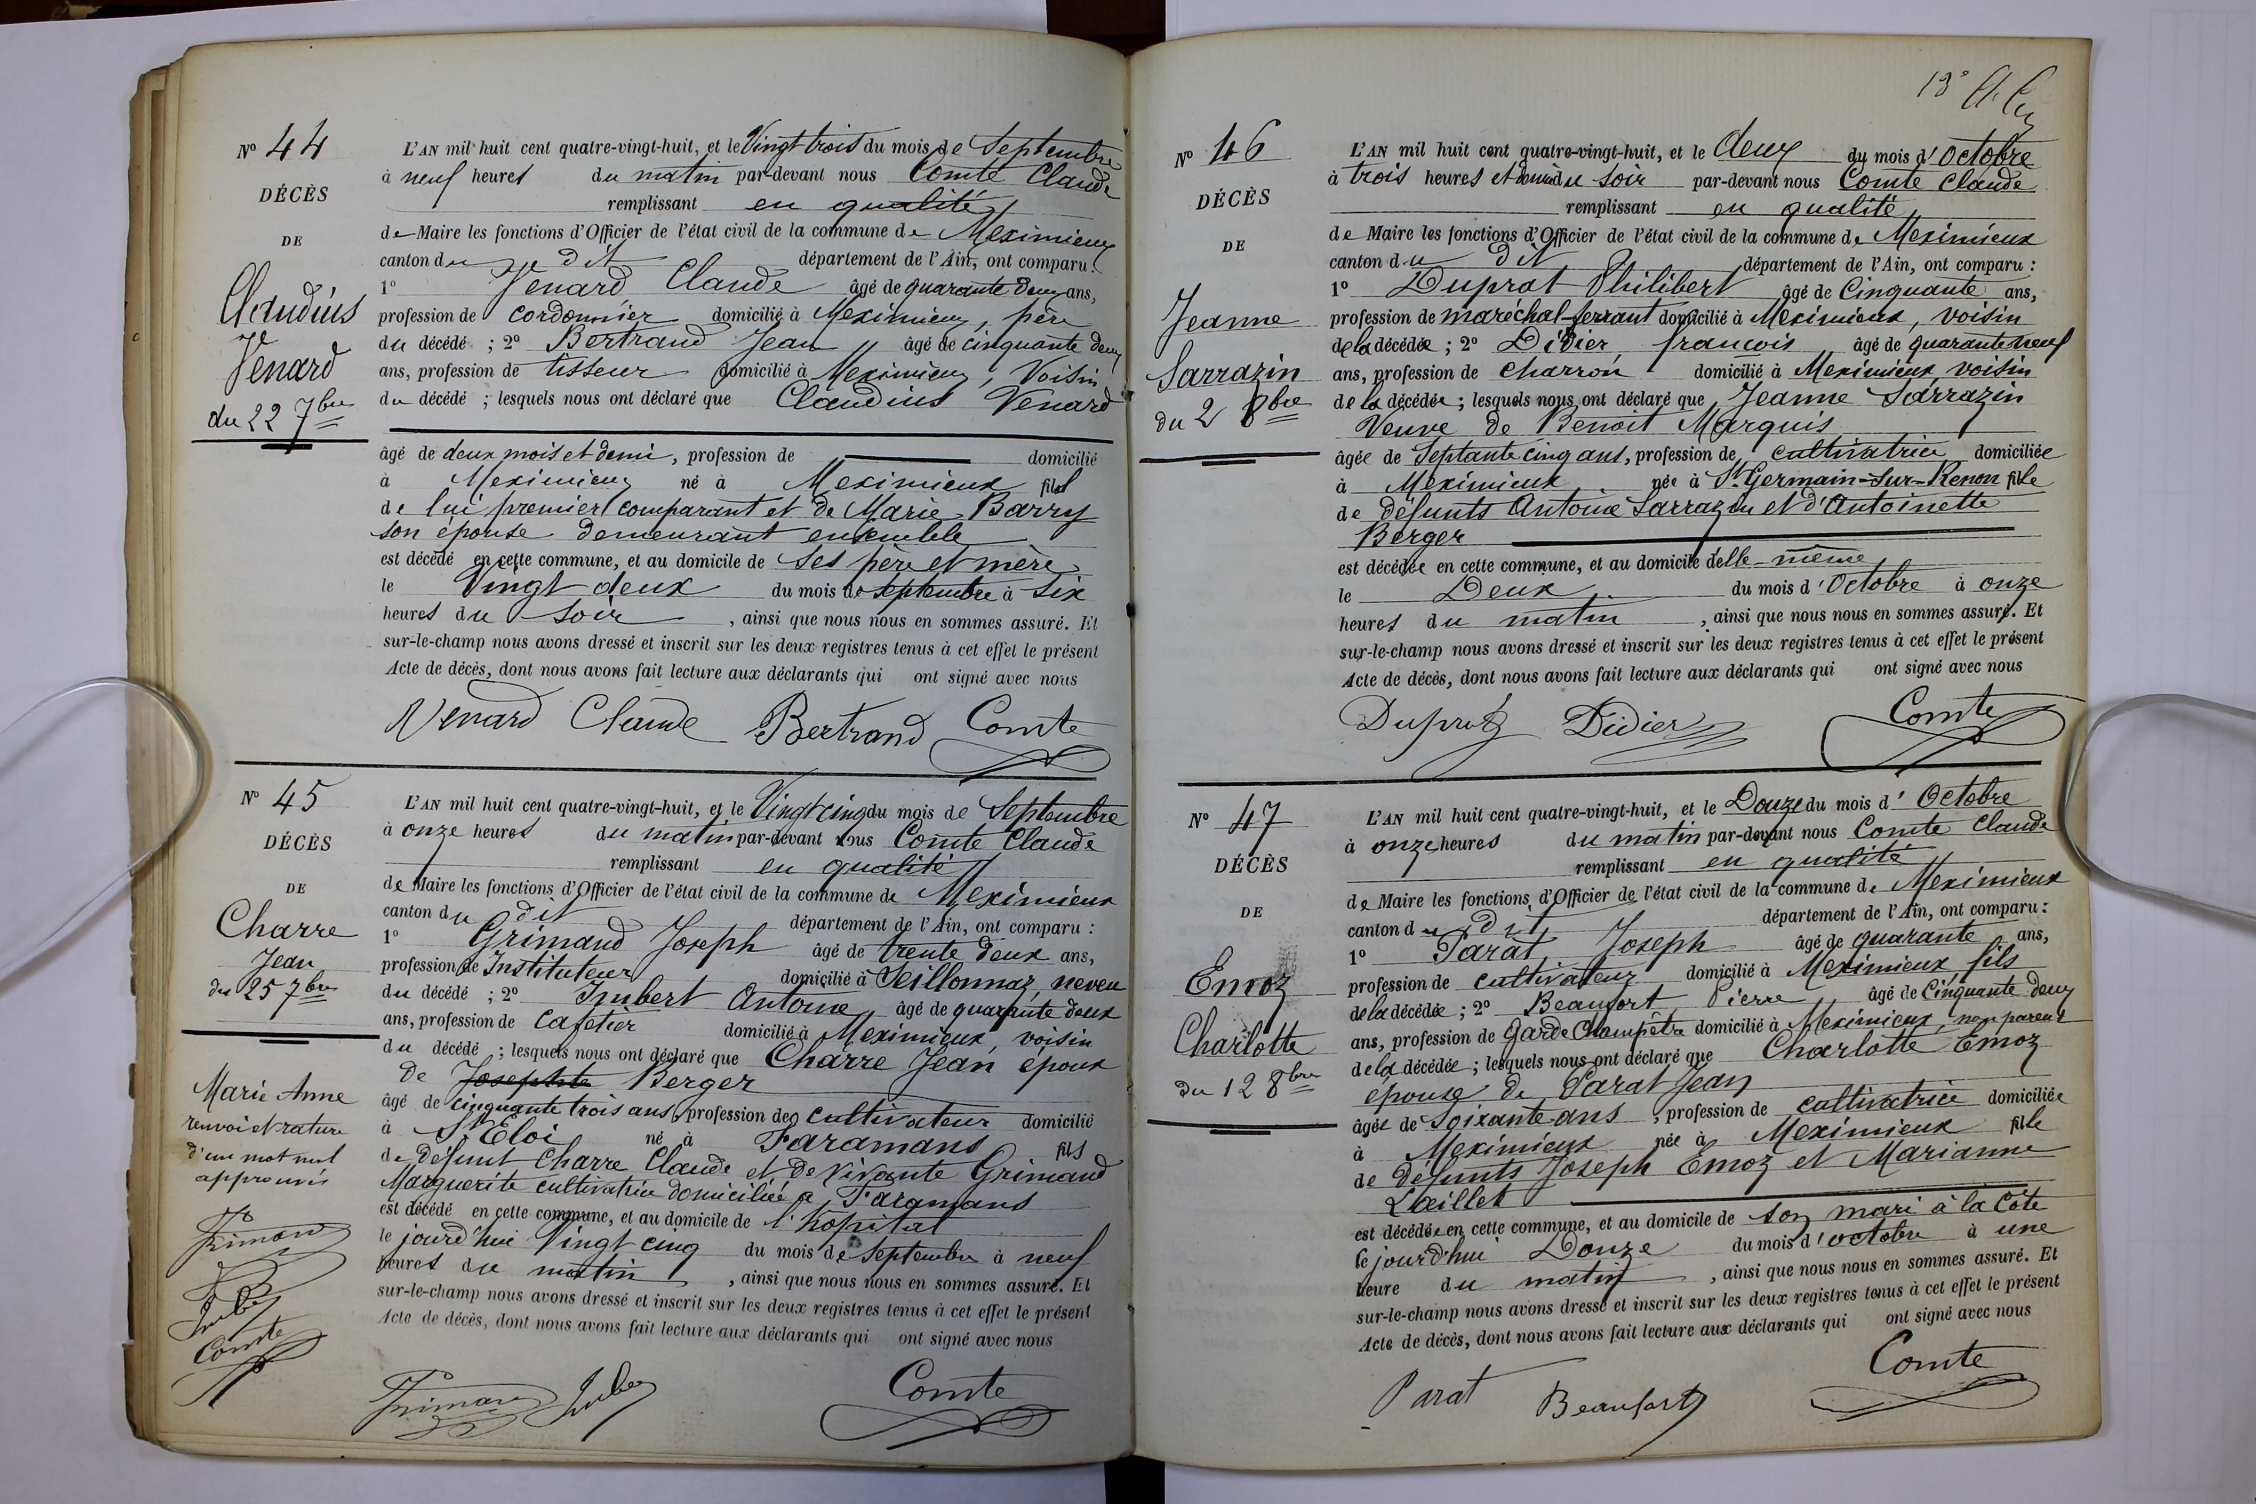 Nº 44
DÉCÈS
DE
Claudius
Venard
du 22 7bre
L'AN mil huit cent quatre-vingt-huit, et le Vingt trois du mois de Septembre
à neuf heures du matin par-devant nous Comte Claude
remplissant en qualité
de Maire les fonctions d'Officier de l'état civil de la commune de Meximieux
canton du dit département de l'Ain, ont comparu :
1º Venard Claude âgé de quarante deux ans,
profession de cordonnier domicilié à Meximieux, père
du décédé ; 2º Bertrand Jean âgé de cinquante deux
ans, profession de tisseur domicilié à Meximieux, Voisin
du décédé ; lesquels nous ont déclaré que Claudius Venard
âgé de deux mois et demi, profession de domicilié
à Meximieux né à Meximieux fils
de lui premier comparant et de Marie Barry
son épouse demeurant ensemble
est décédé en cette commune, et au domicile de ses père et mère
le Vingt deux du mois de septembre à six
heures du soir, ainsi que nous nous en sommes assuré. Et
sur-le-champ nous avons dressé et inscrit sur les deux registres tenus à cet effet le présent
Acte de décès, dont nous avons fait lecture aux déclarants qui ont signé avec nous
Venard Claude Bertrand Comte
Nº 45
DÉCÈS
DE
Charre
Jean
du 25 7bre
Marie Anne
renvoi et rature
d'un mot nul
approuvés
Grimand
Imbert
Comte
L'AN mil huit cent quatre-vingt-huit, et le Vingt cinq du mois de Septembre
à onze heures du matin par-devant nous Comte Claude
remplissant en qualité
de Maire les fonctions d'Officier de l'état civil de la commune de Meximieux
canton du dit département de l'Ain, ont comparu :
1º Grimand Joseph âgé de trente deux ans,
profession de Instituteur domicilié à Seillonnaz, neveu
du décédé ; 2º Imbert Antoine âgé de quarante deux
ans, profession de Cafetier domicilié à Meximieux, voisin
du décédé ; lesquels nous ont déclaré que Charre Jean époux
de Josephte Berger
âgé de cinquante trois ans, profession de cultivateur domicilié
à St Eloi né à Faramans fils
de défunt Charre Claude et de vivante Grimand
Marguerite cultivatrice domiciliée à Faramans
est décédé en cette commune, et au domicile de l'hopital
le jourd'hui Vingt cinq du mois de Septembre à neuf
heures du matin, ainsi que nous nous en sommes assuré. Et
sur-le-champ nous avons dressé et inscrit sur les deux registres tenus à cet effet le présent
Acte de décès, dont nous avons fait lecture aux déclarants qui ont signé avec nous
Grimand Imbert Comte
13e
Nº 46
DÉCÈS
DE
Jeanne
Sarrazin
du 2 8bre
L'AN mil huit cent quatre-vingt-huit, et le deux du mois d'Octobre
à trois heures et demie du soir par-devant nous Comte Claude
remplissant en qualité
de Maire les fonctions d'Officier de l'état civil de la commune de Meximieux
canton du dit département de l'Ain, ont comparu :
1º Duprat Philibert âgé de Cinquante ans,
profession de maréchal-ferrant domicilié à Meximieux, voisin
de la décédée ; 2º Didier françois âgé de quarante neuf
ans, profession de charron domicilié à Meximieux voisin
de la décédée ; lesquels nous ont déclaré que Jeanne Sarrazin
Veuve de Benoit Marquis
âgée de Septante cinq ans, profession de cultivatrice domiciliée
à Meximieux née à St Germain-sur-Renon fille
de défunts Antoine Sarrazin et d'Antoinette
Berger
est décédée en cette commune, et au domicile d'elle-même
le Deux du mois d'Octobre à onze
heures du matin, ainsi que nous nous en sommes assuré. Et
sur-le-champ nous avons dressé et inscrit sur les deux registres tenus à cet effet le présent
Acte de décès, dont nous avons fait lecture aux déclarants qui ont signé avec nous
Duprat Didier Comte
Nº 47
DÉCÈS
DE
Emoz
Charlotte
du 12 8bre
L'AN mil huit cent quatre-vingt-huit, et le Douze du mois d'Octobre
à onze heures du matin par-devant nous Comte Claude
remplissant en qualité
de Maire les fonctions d'Officier de l'état civil de la commune de Meximieux
canton du dit département de l'Ain, ont comparu :
1º Parat Joseph âgé de quarante ans,
profession de cultivateur domicilié à Meximieux, fils
de la décédée ; 2º Beaufort Pierre âgé de Cinquante deux
ans, profession de Garde Champêtre domicilié à Meximieux, non parent
de la décédée ; lesquels nous ont déclaré que Charlotte Emoz
épouse de Parat Jean
âgée de Soixante ans, profession de cultivatrice domiciliée
à Meximieux née à Meximieux fille
de défunts Joseph Emoz et Marianne
L'œillet
est décédée en cette commune, et au domicile de son mari à la Côte
le jourd'hui Douze du mois d'octobre à une
heure du matin, ainsi que nous nous en sommes assuré. Et
sur-le-champ nous avons dressé et inscrit sur les deux registres tenus à cet effet le présent
Acte de décès, dont nous avons fait lecture aux déclarants qui ont signé avec nous
Parat Beaufort Comte